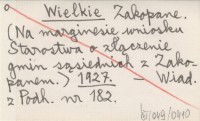 Wielkie Zakopane.
(Na marginesie wniosku
Starostwa o złączenie
gmin sąsiednich z Zako-
panem.) 1927. — Wiad.
z Podh. nr 182.